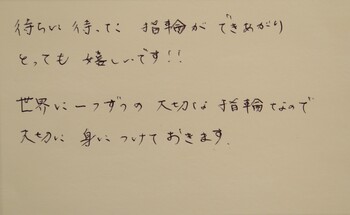 待ちに待った 指輪が できあがり
とっても 嬉しいです!!
世界に一つずつの 大切な 指輪なので
大切に 身に つけて おきます.